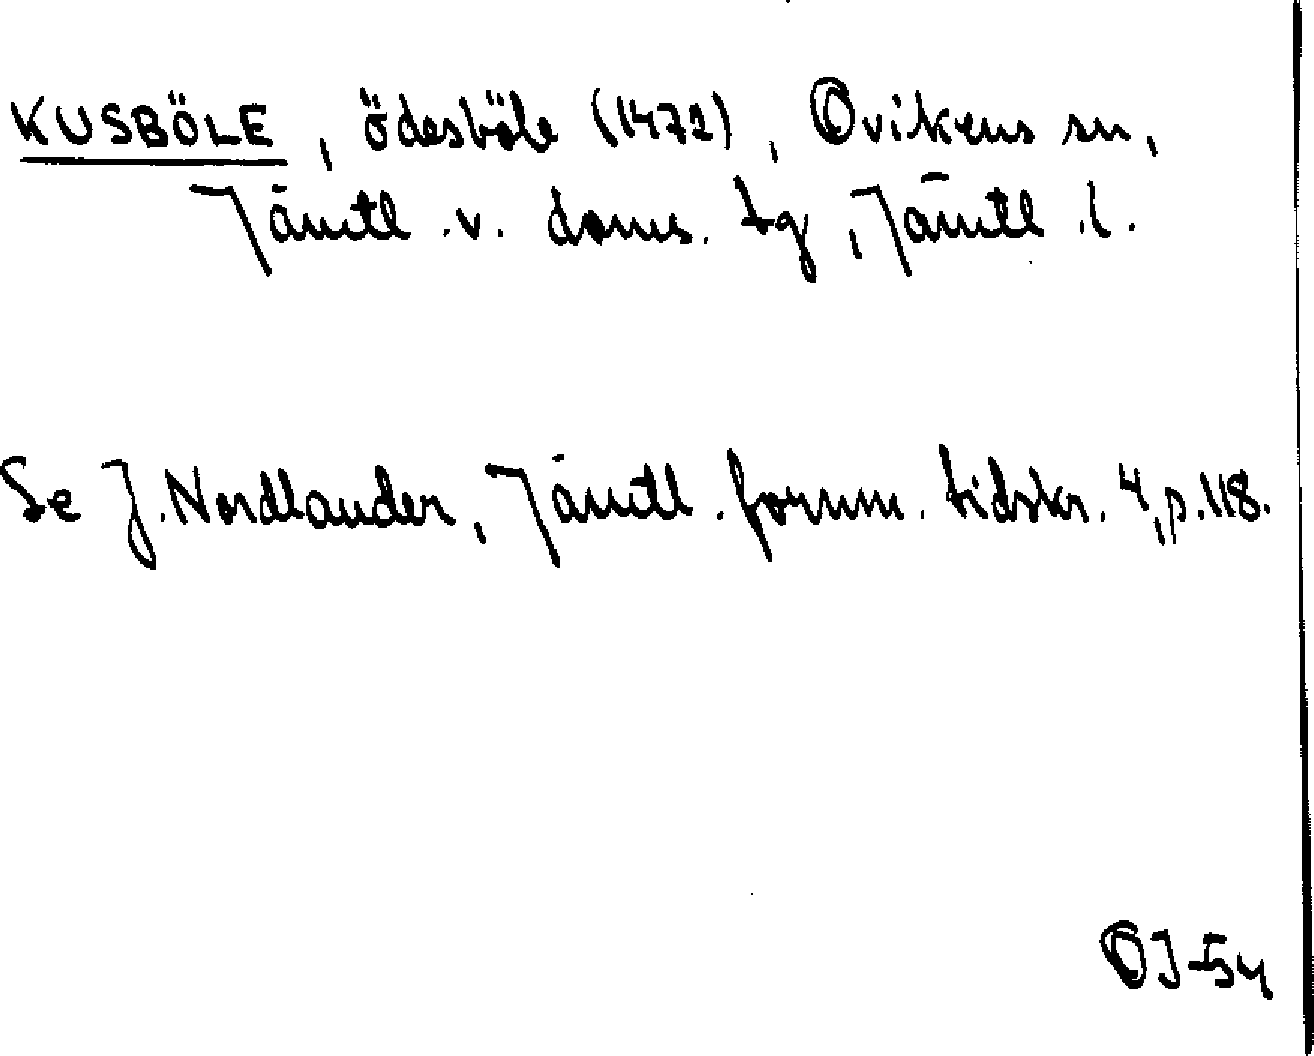 KUSBÖLE, ödesböle (1472), Ovikens sn,
Jämtl. v. doms. tg, Jämtl. l.
Se J. Nordlander, Jämtl. fornm. tidskr. 4, p. 118.
OJ-54